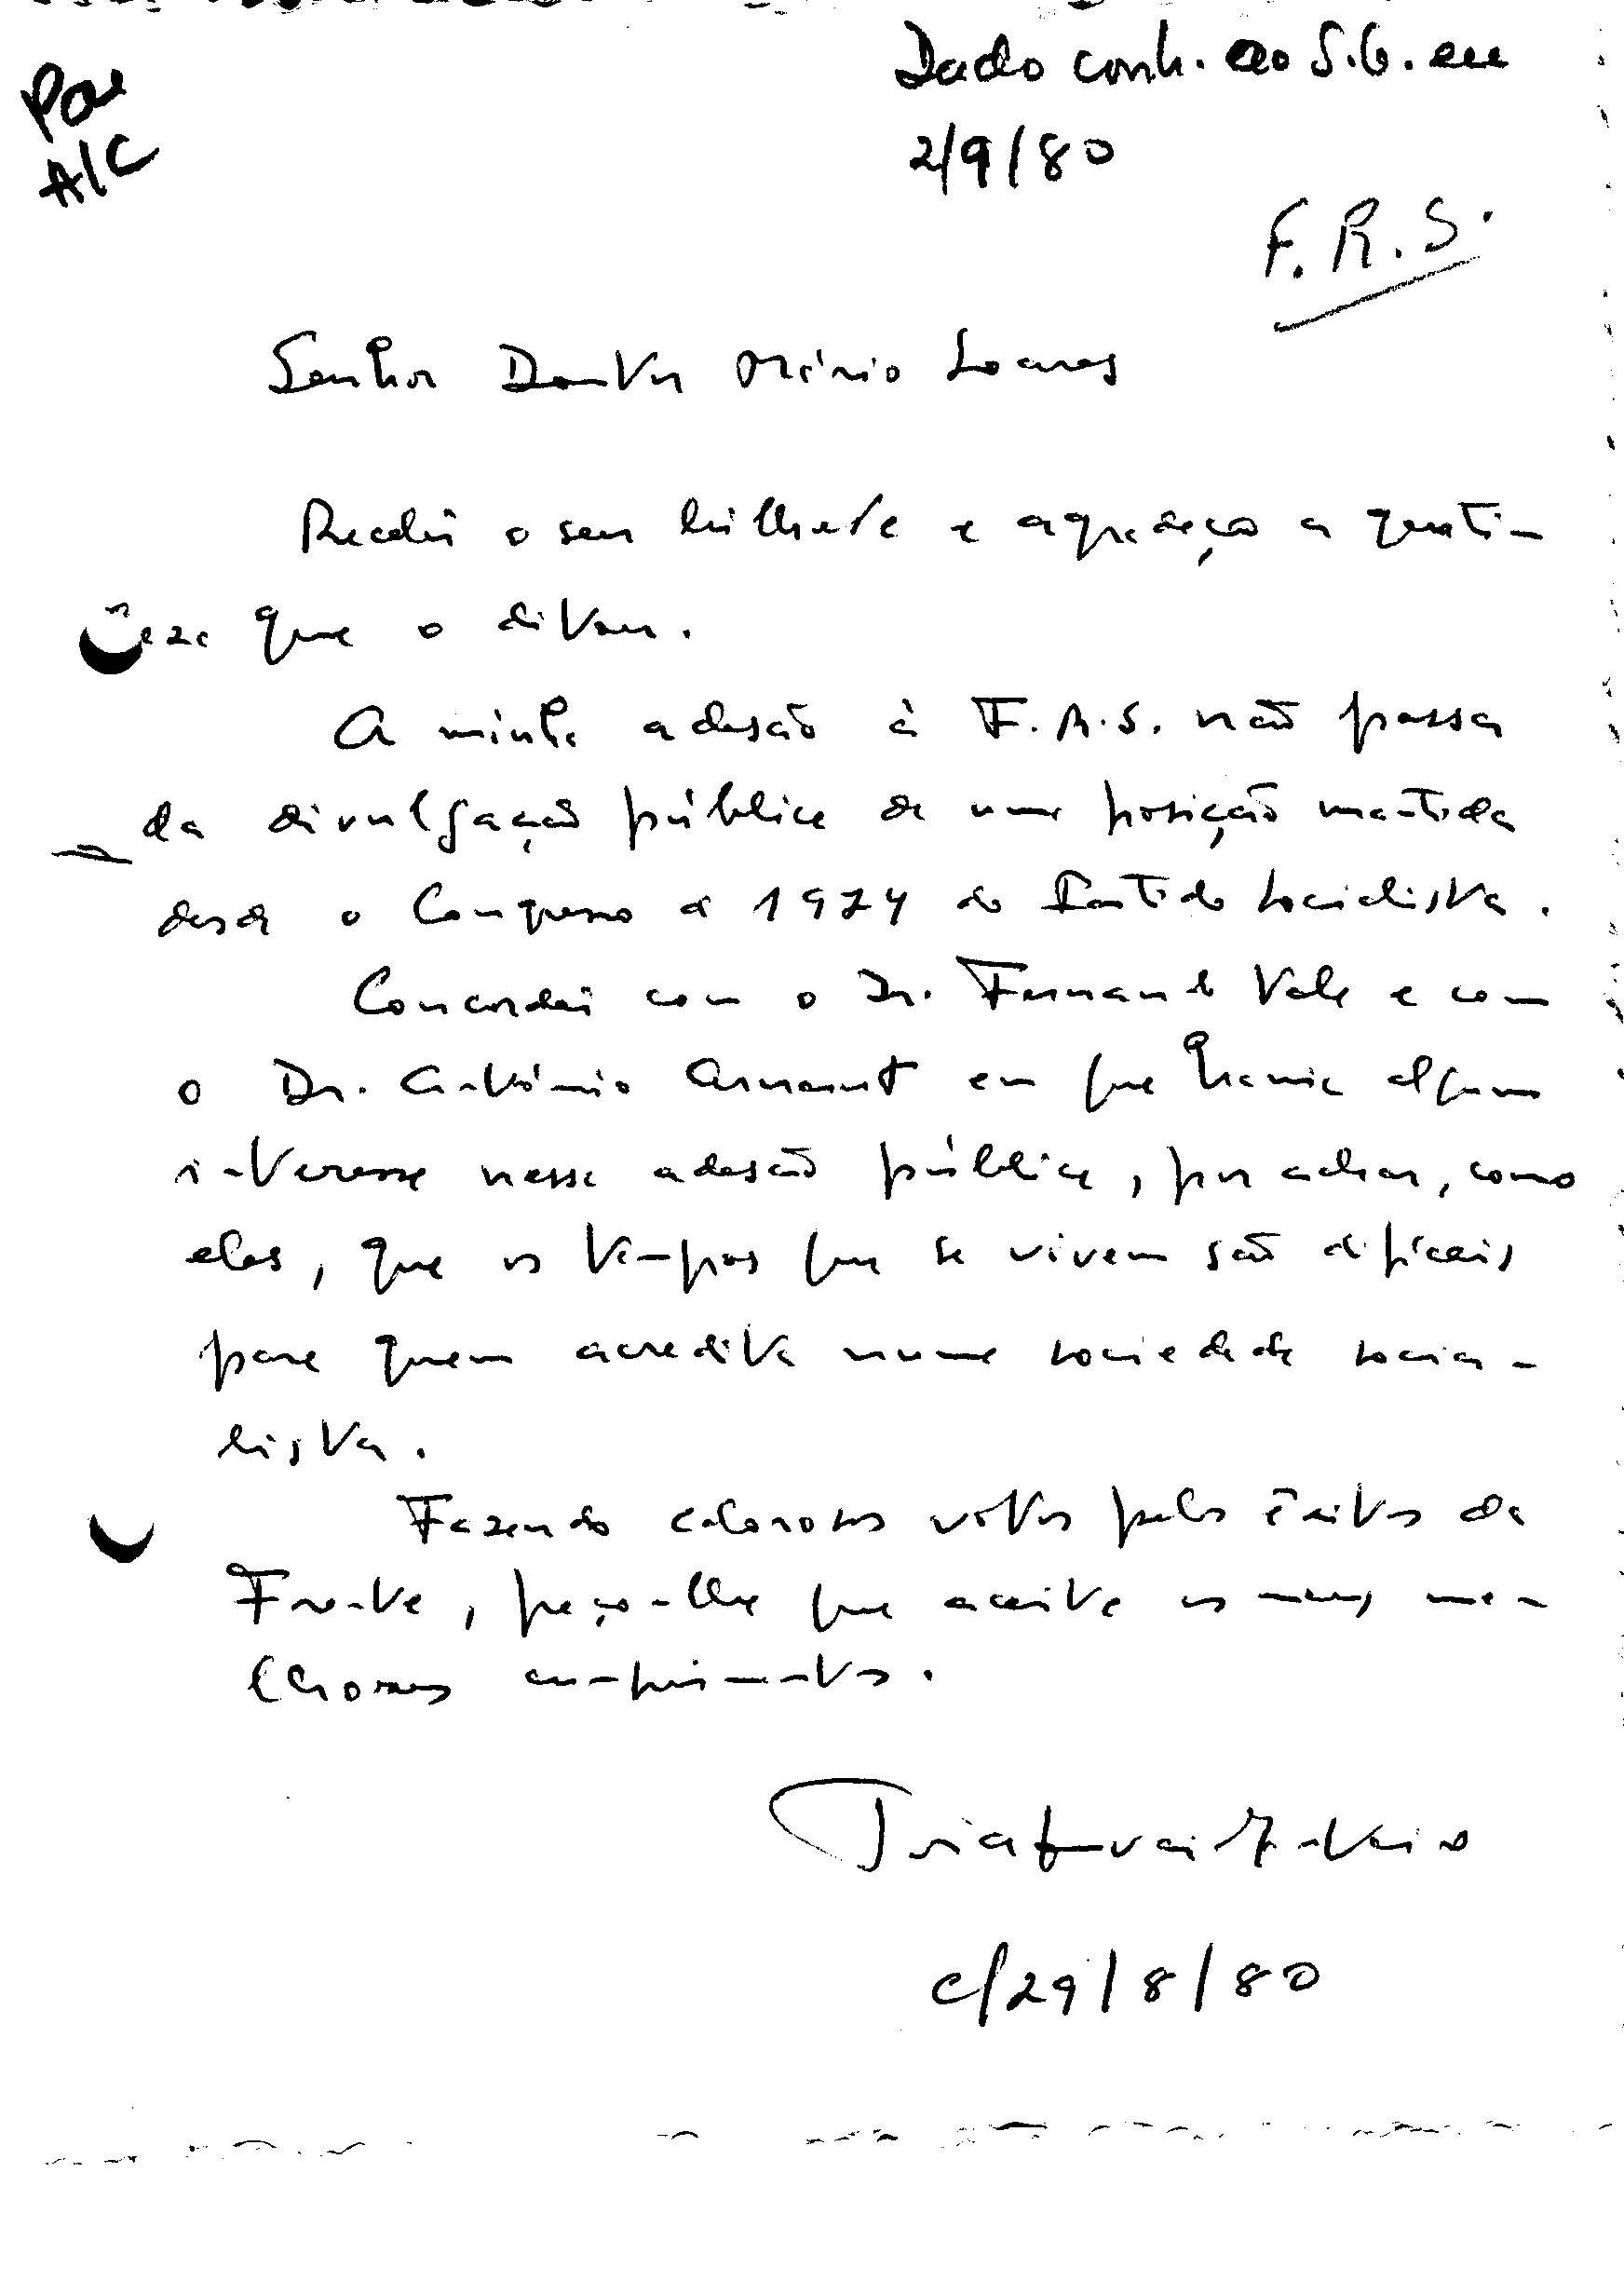 Dado conh. ao S.G. em
2/9/80
A/C
F.R.S.
Senhor Doutor Mário Soares
Recebi o seu bilhete e agradeço a genti-
leza que o ditou.
A minha adesão à F.R.S. não passa
da divulgação pública de uma posição mantida
desde o Congresso de 1974 do Partido Socialista.
Concordei com o Dr. Fernando Vale e com
o Dr. António Arnaut em que havia algum
interesse nessa adesão pública, por achar, como
eles, que os tempos que se vivem são difíceis
para quem acredita numa sociedade socia-
lista.
Fazendo calorosos votos pelos êxitos da
Frente, peço-lhe que aceite os meus me-
lhores cumprimentos.
c/29/8/80